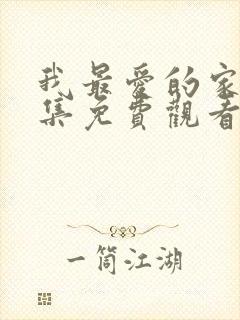 我最愛的家
集免費觀看
一筒江湖